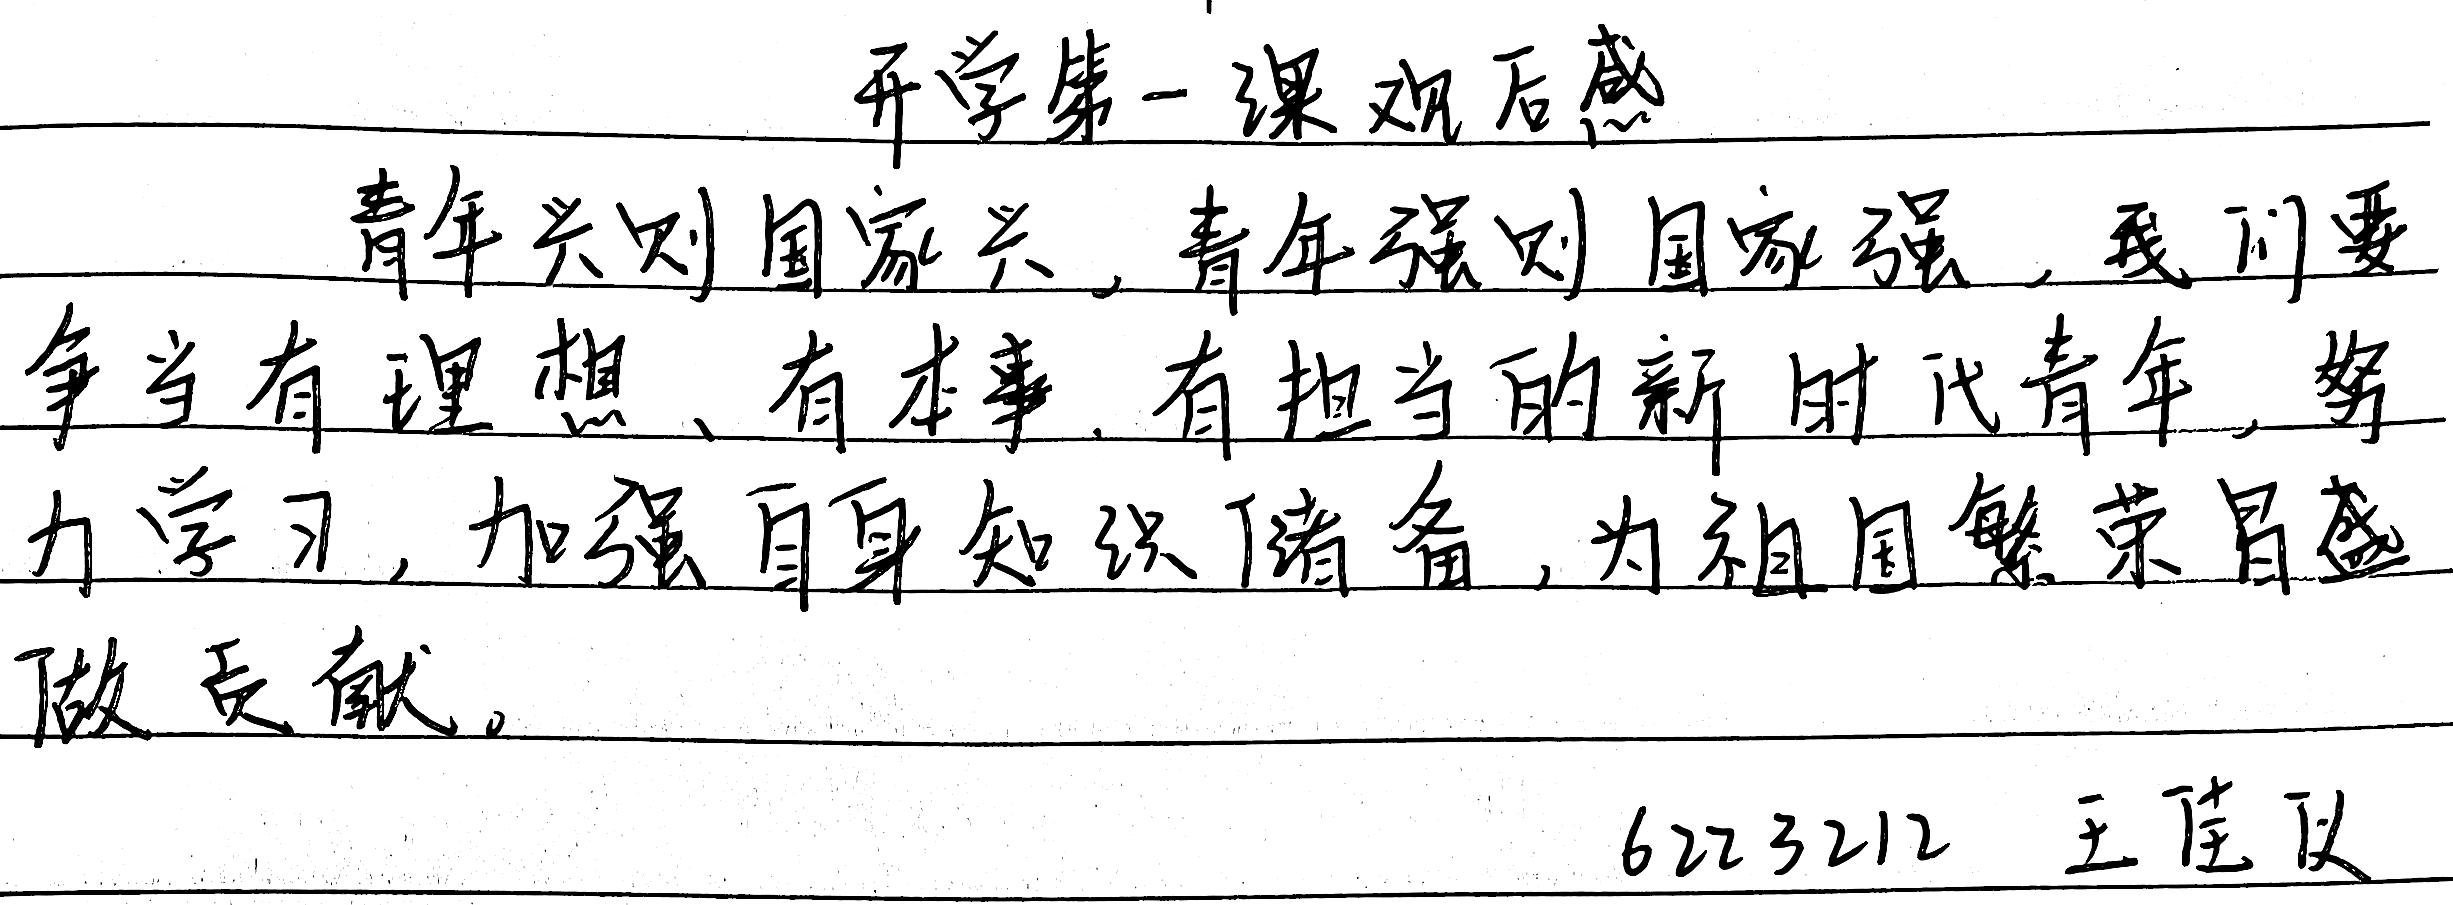 开学第一课观后感
青年兴则国家兴，青年强则国家强，我们要
争当有理想、有本事、有担当的新时代青年，努
力学习，加强自身知识储备，为祖国繁荣昌盛
做贡献。
6223212 王佳仪